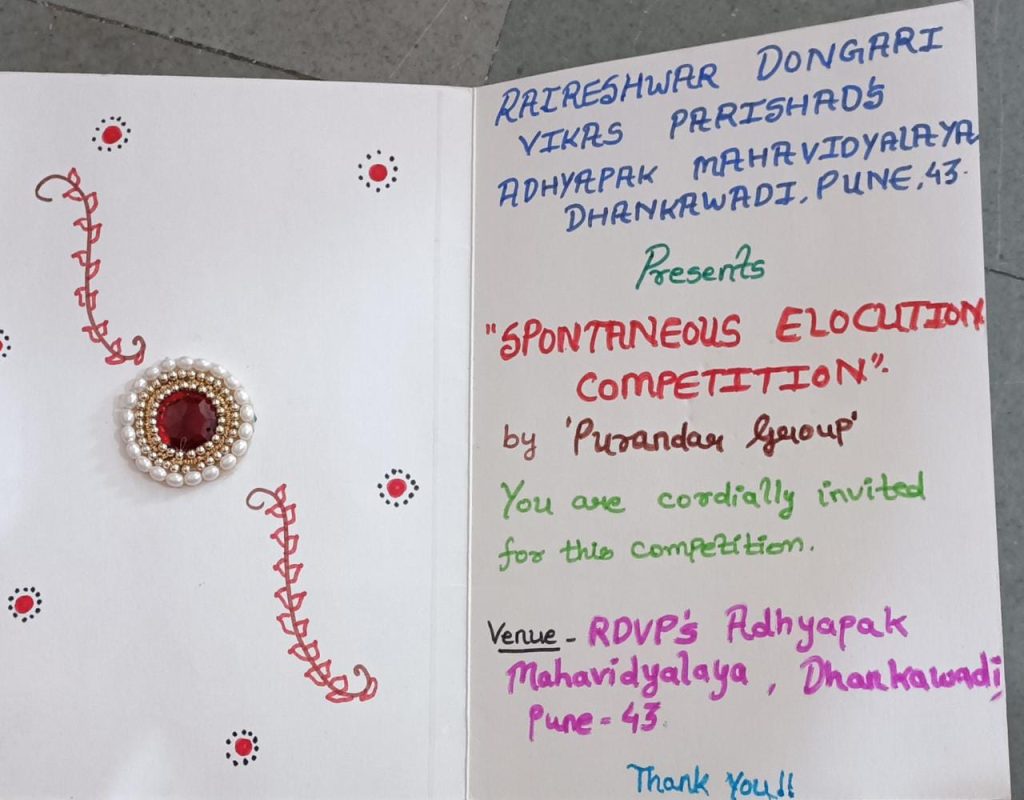 RAIRESHWAR DONGARI
VIKAS PARISHAD'S
ADHYAPAK MAHAVIDYALAYA
DHANKAWADI, PUNE, 43.
Presents
"SPONTANEOUS ELOCUTION
COMPETITION".
by 'Purandar Group'
You are cordially invited
for this competition.
Venue - RDVP's Adhyapak
Mahavidyalaya, Dhankawadi,
Pune - 43.
Thank You!!